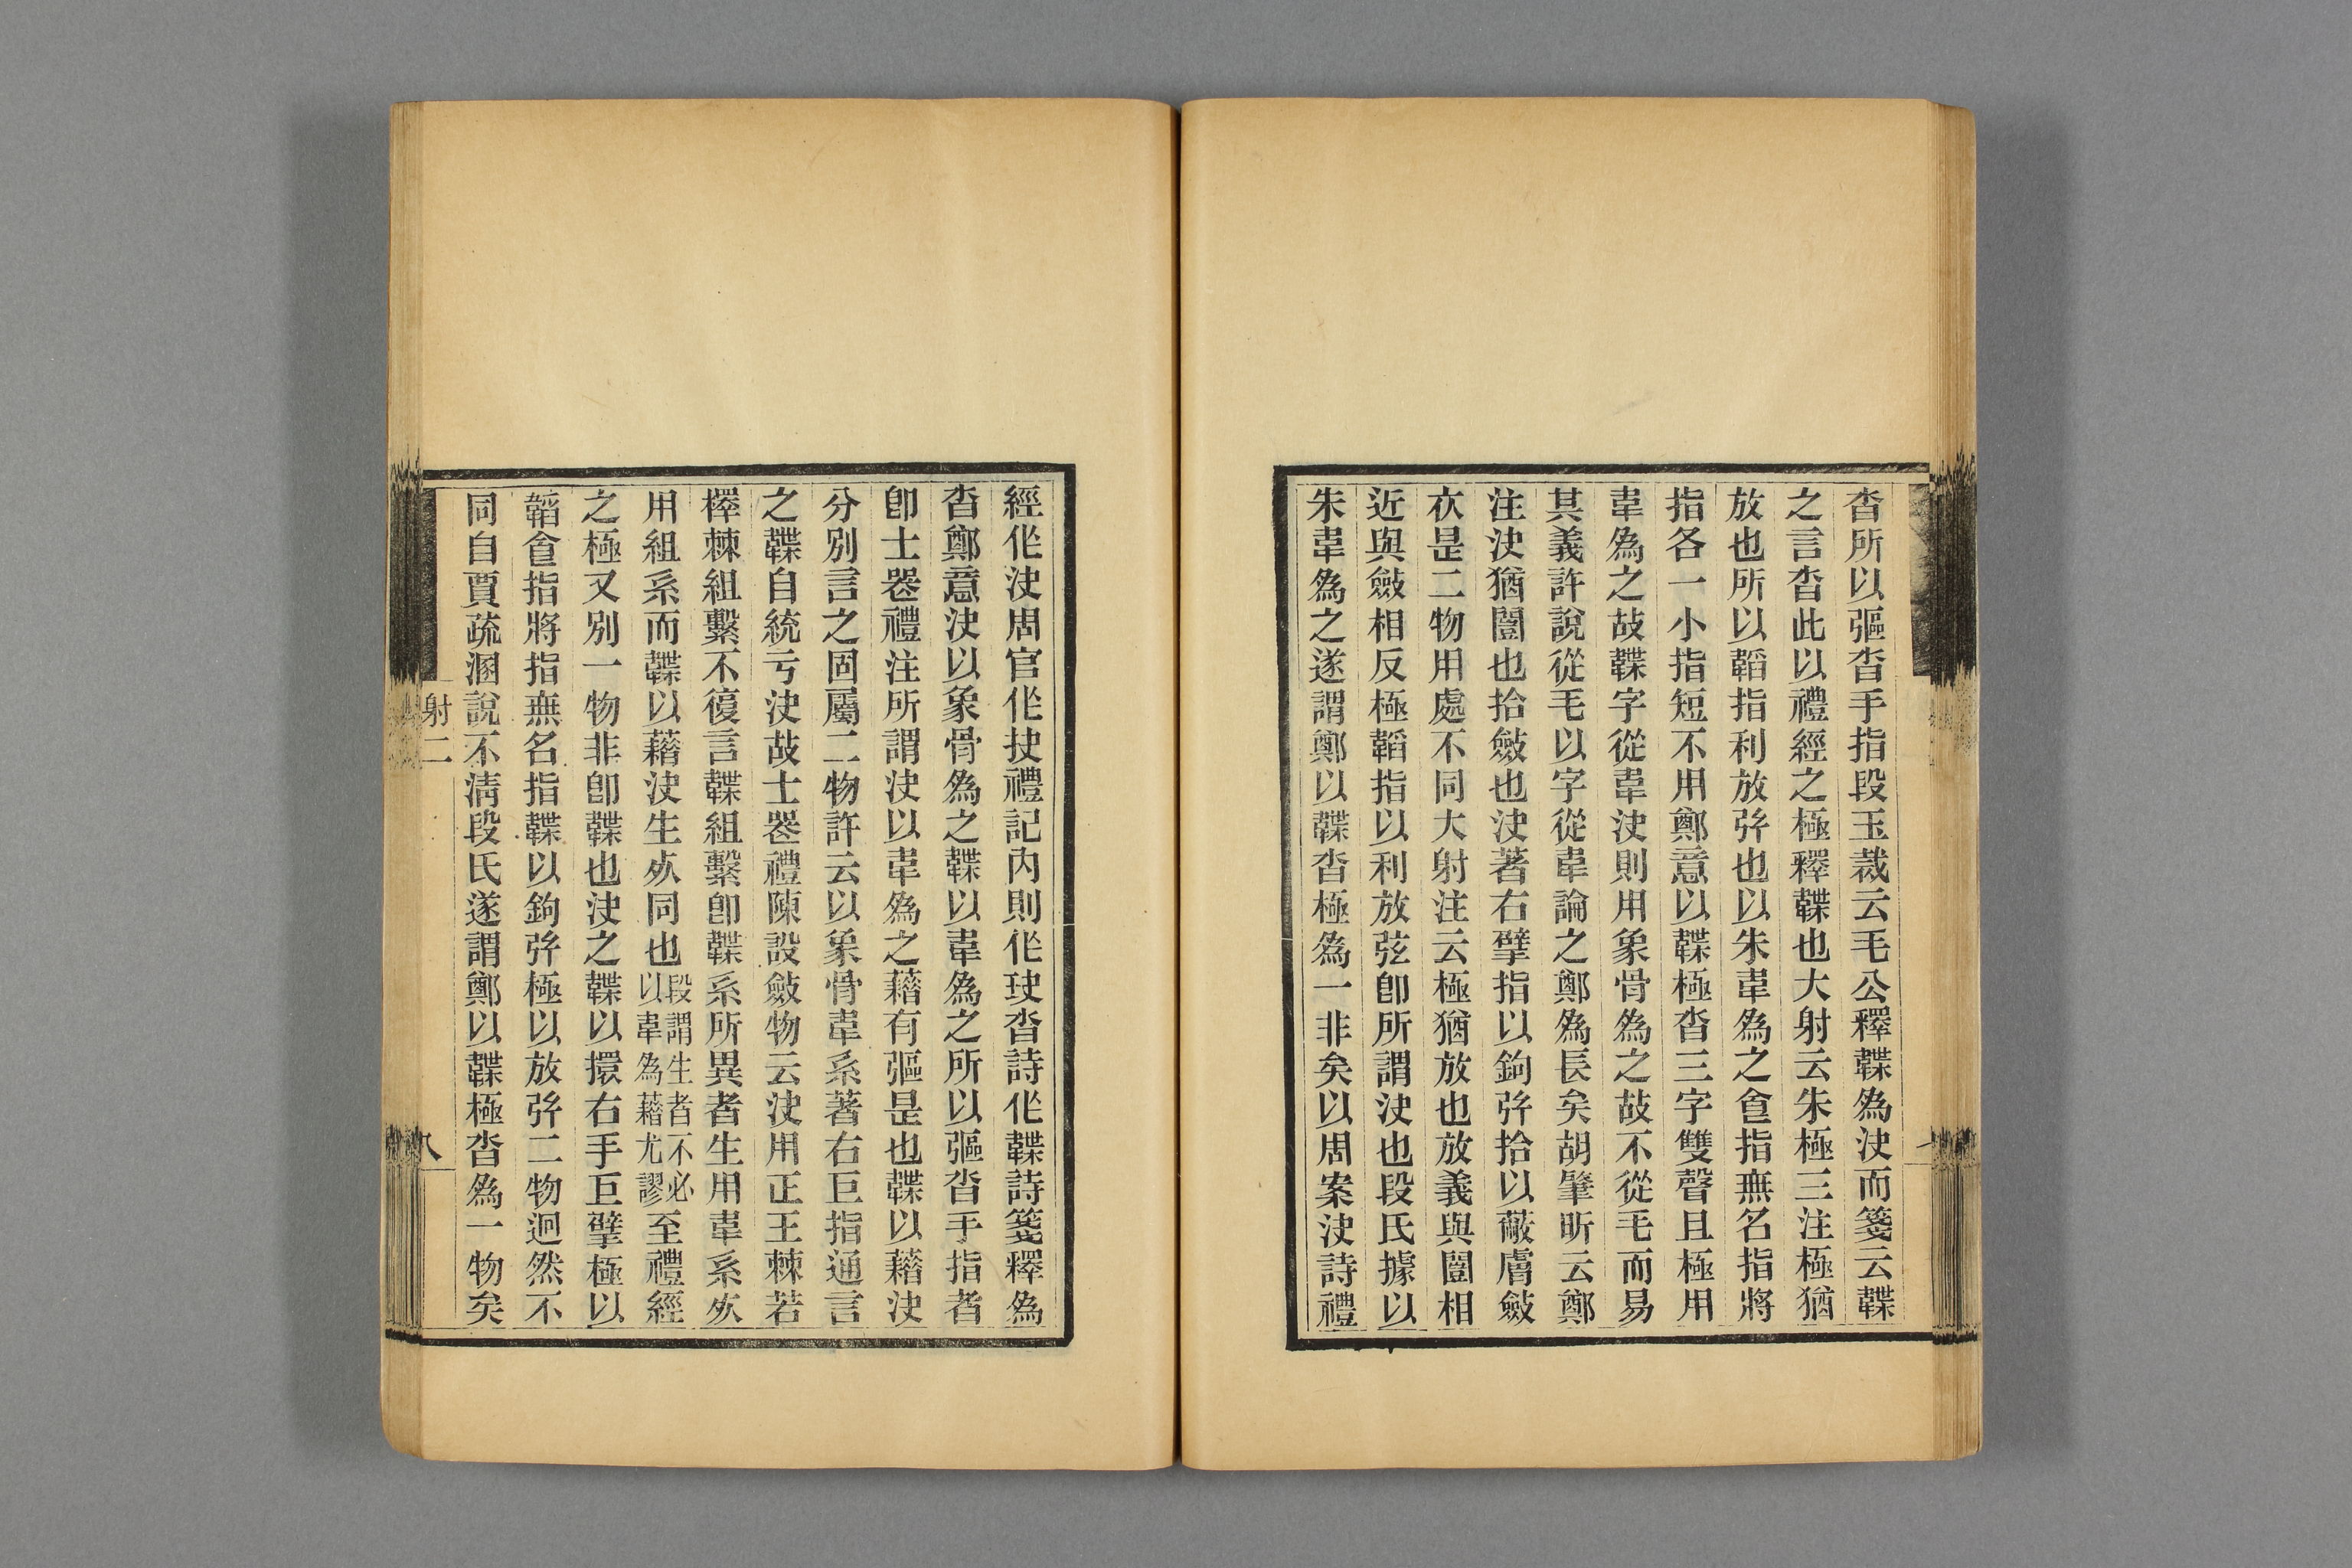 沓所以彄沓手指段玉裁云毛公釋韘爲决而箋云韘
之言沓此以禮經之極釋韘也大射云朱極三注極猶
放也所以韜指利放弦也以朱韋爲之食指無名指將
指各一小指短不用鄭意以韘極沓三字雙聲且極用
韋爲之故韘字從韋决則用象骨爲之故不從毛而易
其義許說從毛以字從韋論之鄭爲長矣胡肇昕云鄭
注决猶闓也拾斂也决著右擘指以鉤弦拾以蔽膚斂
衣是二物用處不同大射注云極猶放也放義與闓相
近與斂相反極韜指以利放弦卽所謂决也段氏據以
朱韋爲之遂謂鄭以韘沓極爲一非矣以周案决詩禮
經作决周官作抉禮記內則作玦沓詩作韘詩箋釋爲
沓鄭意决以象骨爲之韘以韋爲之所以彄沓手指者
卽士喪禮注所謂决以韋爲之藉有彄是也韘以藉决
分別言之固屬二物許云以象骨韋系著右巨指通言
之韘自統亏决故士喪禮陳設斂物云决用正王棘若
檡棘組繫不復言韘組繫卽韘系所異者生用韋系死
用組系而韘以藉决生死同也段謂生者不必以韋爲藉尤謬至禮經
之極又別一物非卽韘也决之韘以擐右手巨擘極以
韜食指將指無名指韘以鉤弦極以放弦二物迥然不
同自賈疏溷說不淸段氏遂謂鄭以韘極沓爲一物矣
射二
八